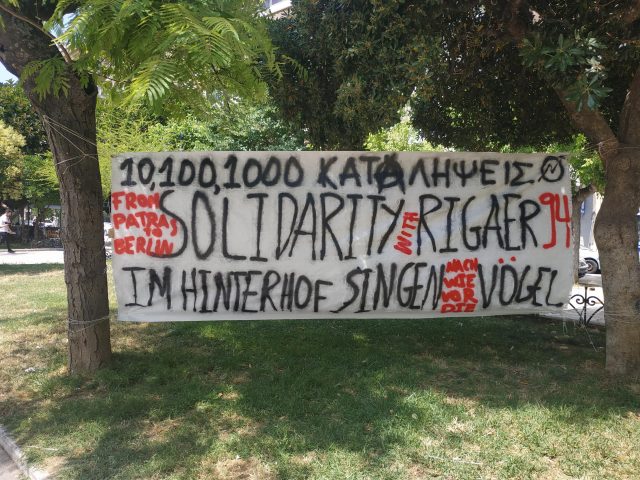 10,100,1000 ΚΑΤΑΛΗΨΕΙΣ
FROM PATRAS TO BERLIN
SOLIDARITY WITH RIGAER 94
IM HINTERHOF SINGEN NACH WIE VOR DIE VÖGEL